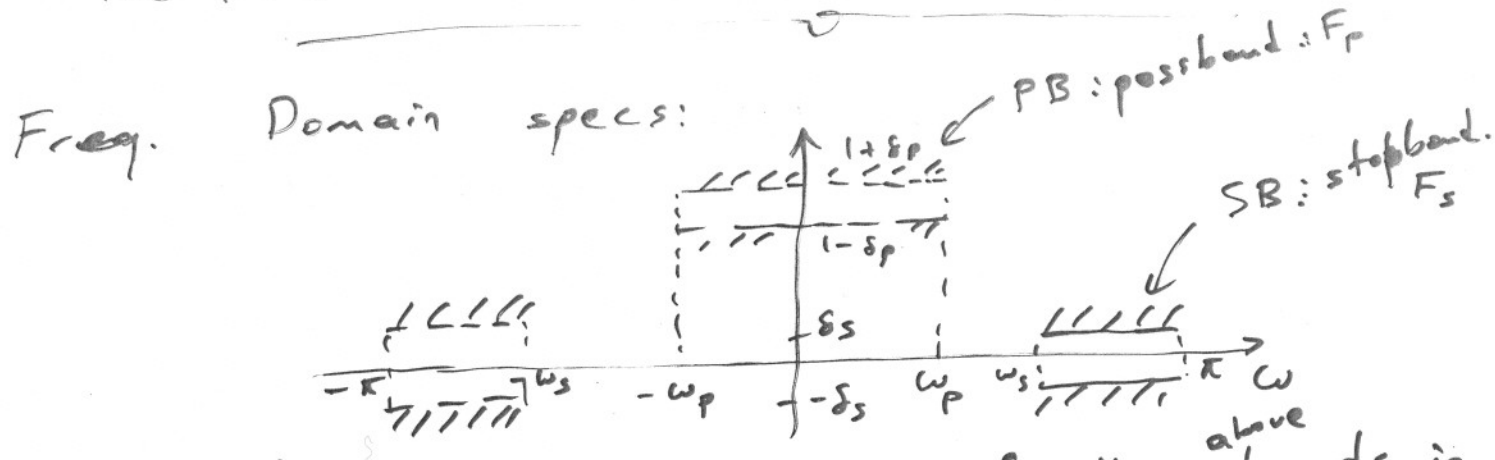 Freq. Domain specs:
PB : passband : Fp
1+δp
SB : stopband.
Fs
1-δp
δs
-π
-ωs
-ωp
-δs
ωp
ωs
π
ω
above